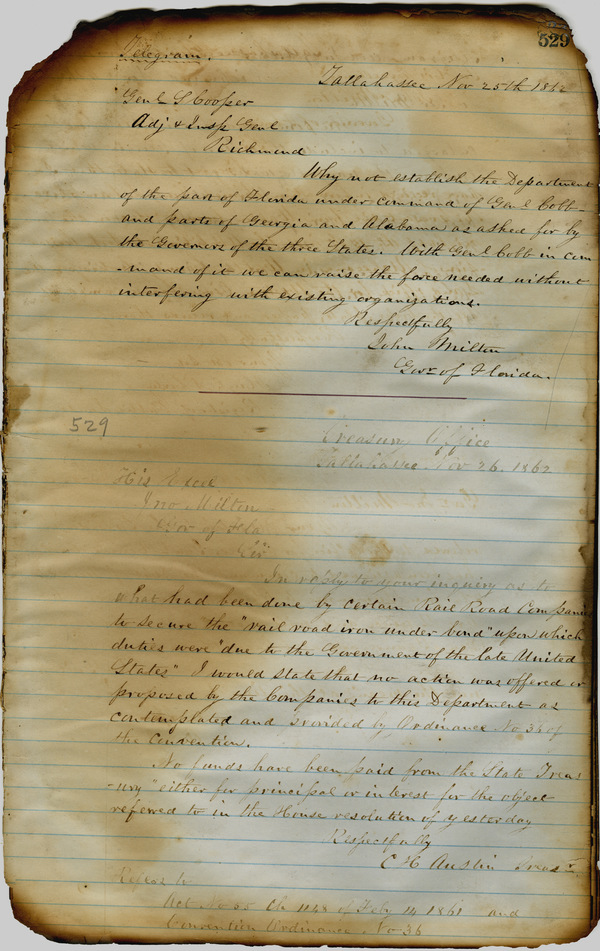 529
Telegram.
Tallahassee Nov 25th 1862
Genl S Cooper
Adj & Insp Genl
Richmond
Why not establish the Department
of the part of Florida under command of Genl Cobb
and parts of Georgia and Alabama as asked for by
the Governors of the three States. With Genl Cobb in com
-mand of it we can raise the force needed without
interfering with existing organizations.
Respectfully
John Milton
Govr of Florida.
529
Treasury Office
Tallahassee Nov 26. 1862
His Excel
Jno Milton
Gov of Fla
Sir
In reply to your inquiry as to
what had been done by certain Rail Road Companies
to secure the "rail road iron under bond" upon which
duties were "due to the Government of the late United
States" I would state that no action was offered or
proposed by the Companies to this Department as
contemplated and provided by Ordinance No 36 of
the Convention.
No funds have been paid from the State Treas
-ury "either for principal or interest for the object
referred to in the House resolution of yesterday
Respectfully
C H Austin Treasr.
Refer to
Act No 55 Ch 1148 of Feby 14 1861 and
Convention Ordinance No 36